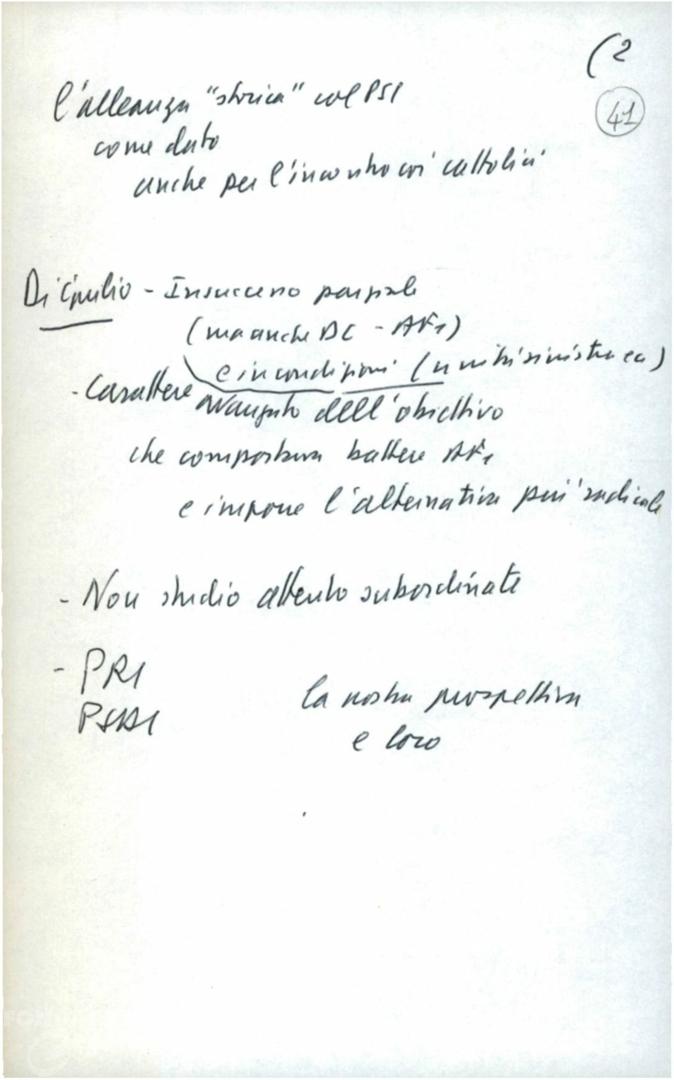 (2
41
l'alleanza "storica" col PSI
come dato
anche per l'incontro coi cattolici
Di Giulio - Insuccesso parziale
(ma anche DC - AF1)
e in condizioni (unità sinistra ecc)
- Carattere avanzato dell'obiettivo
che comportava battere AF1
e impone l'alternativa più radicale
- Non studio attento subordinate
- PRI
PSDI
la nostra prospettiva
e loro